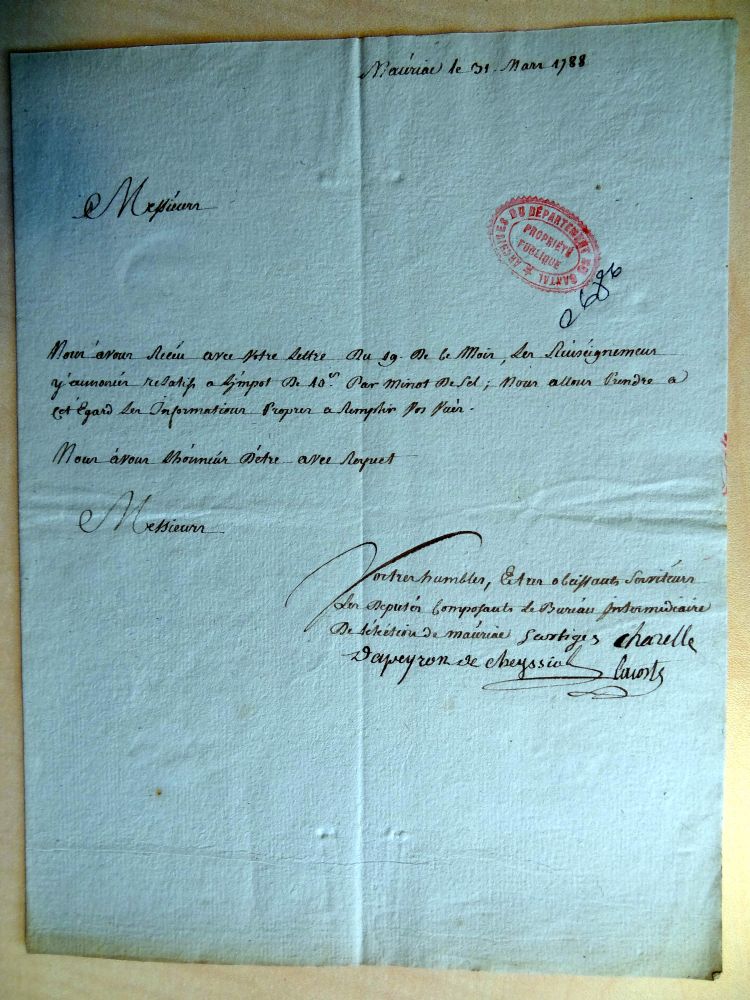 Mauriac le 31. Mars 1788
Messieurs
ARCHIVES DU DÉPARTEMENT DU CANTAL
PROPRIÉTÉ
PUBLIQUE
2686
Nous avons Reçu avec Votre Lettre Du 19. De Ce Mois, Les
relatif a L'jmpot De 10.s Par Minot De Sel; Nous allons Prendre a
Cet Egard Les Informations Propres a Remplir Vos Vües.
Nous avons L'honneur D'être avec Respect
Messieurs
Vostres humbles, Et tres obeissants Serviteurs
Les Deputés Composants Le Bureau Intermediaire
De L'éléction de mauriac Sartiges Chazelle
Dapeyron de Cheyssiol Lacoste